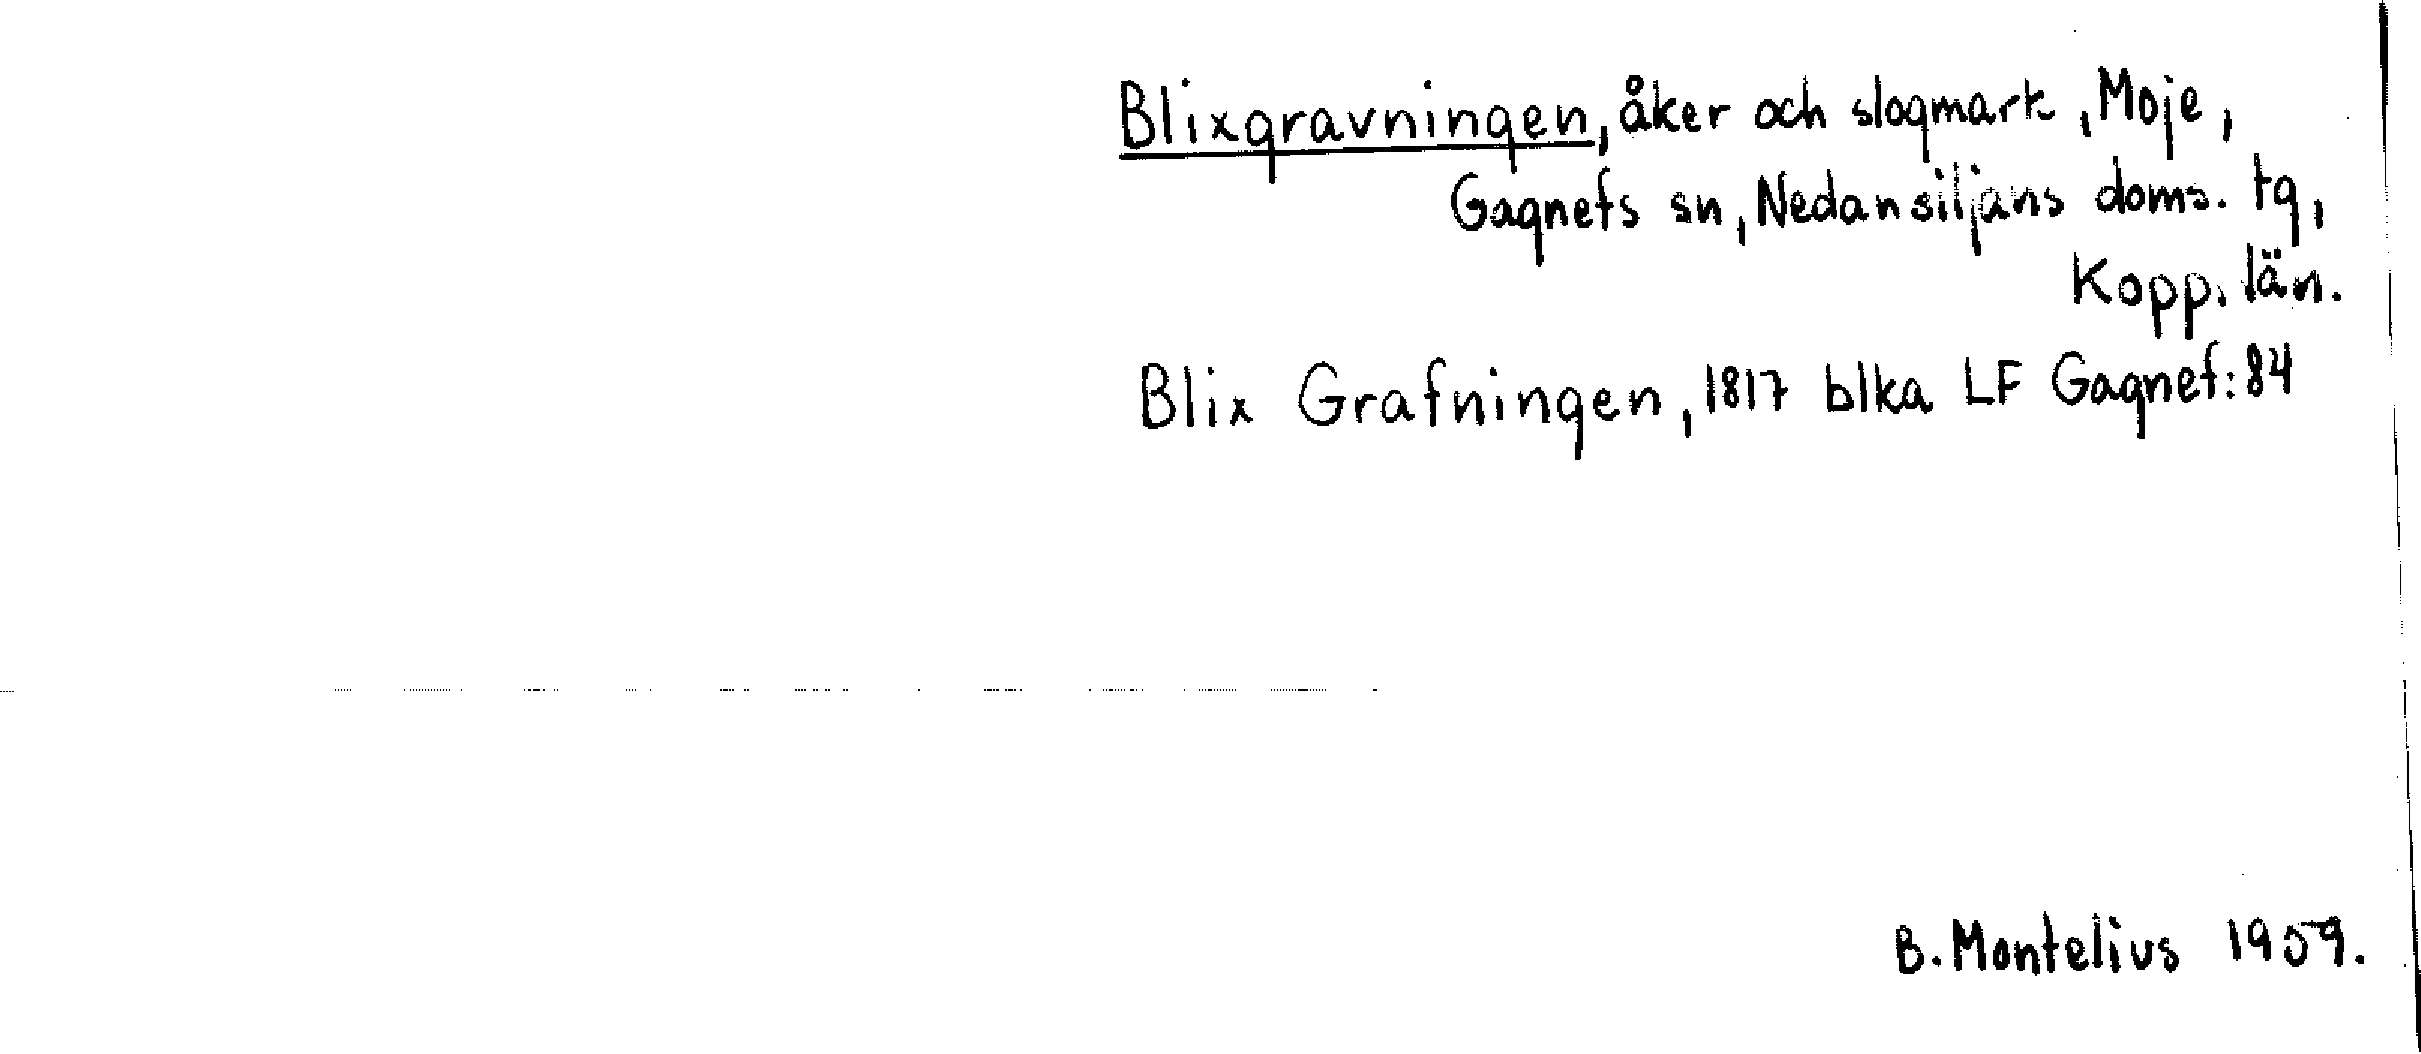 Blixgravningen, åker och slogmark, Moje,
Gagnefs sn, Nedansiljans doms. tg,
Kopp. län.
Blix Grafningen, 1817 blka LF Gagnef: 84
B. Montelius 1959.